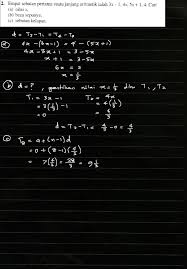 2. Empat sebutan pertama suatu janjang aritmetik ialah 3x - 1, 4x, 5x + 1, 4. Cari
(a) nilai x,
(b) beza sepunya,
(c) sebutan kelapan.
d = T3 - T1 = T2 - T3
a) 4x - (3x - 1) = 4 - (5x + 1)
4x - 3x + 1 = 3 - 5x
x + 1 = 3 - 5x
6x = 2
x = 1/3
b) d = ? , gantikan nilai x = 1/3 dlm T1, T2
T1 = 3x - 1
= 3(1/3) - 1
= 0
T2 = 4x
= 4(1/3)
= 4/3
d = T2 - T1 = 4/3 - 0 = 4/3
c) T8 = a + (n - 1)d
= 0 + (8 - 1)(4/3)
= 7(4/3) = 28/3 = 9 1/3